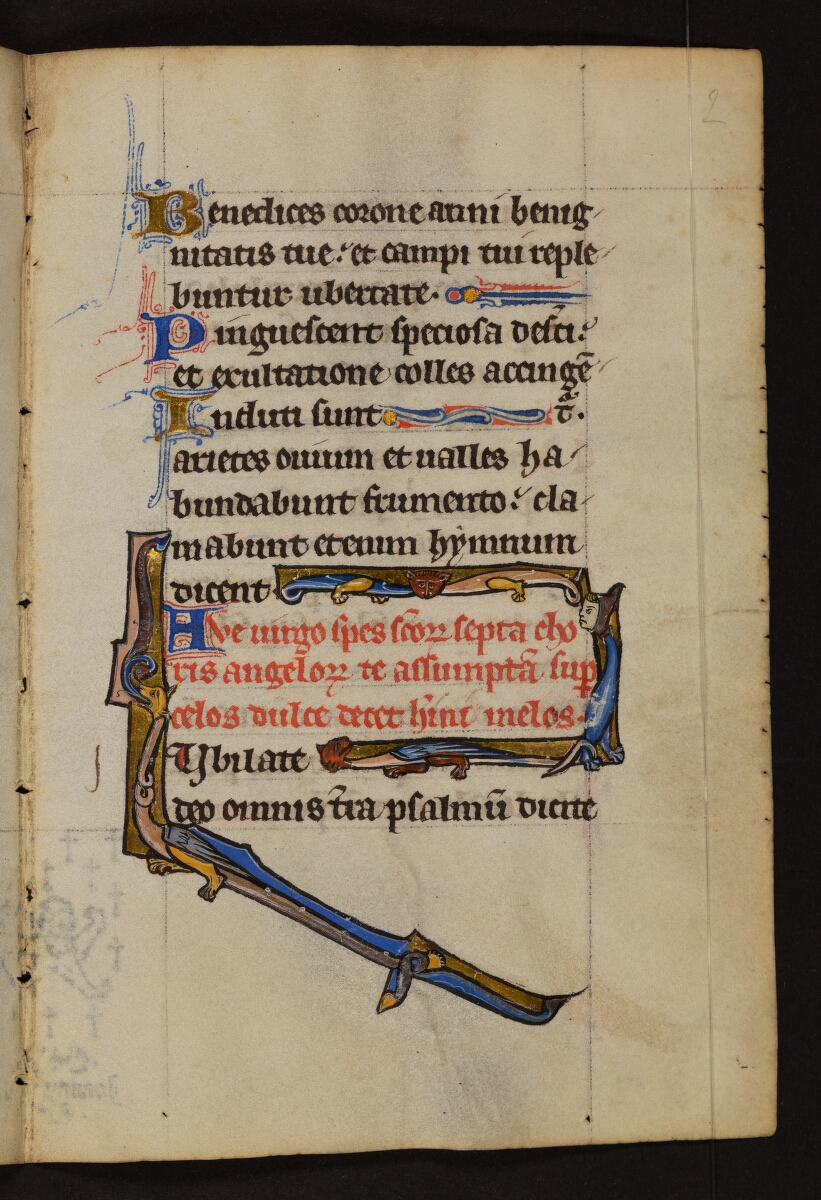 2
Benedices corone anni benig
nitatis tue: et campi tui reple
buntur ubertate.
Pinguescent speciosa deserti:
et exultatione colles accingē
Induti sunt t᷑.
arietes ouium et ualles ha
bundabunt frumento: cla
mabunt etenim hẏmnum
dicent
Aue uirgo spes scōꝝ septa cho
ris angeloꝝ te assumptā suꝑ
celos dulce decet hi̅ni melos.
Iubilate
deo omnis tr̄a psalmū dicite